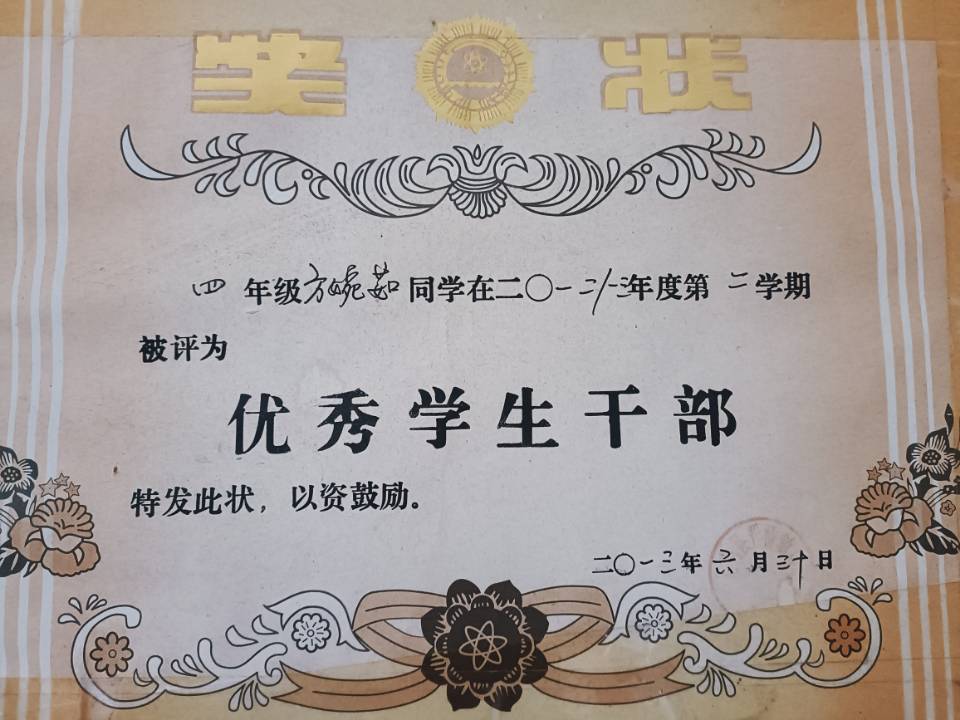 奖状
四年级方婉茹同学在二〇一二/一三年度第二学期
被评为
优秀学生干部
特发此状，以资鼓励。
二〇一三年六月三十日